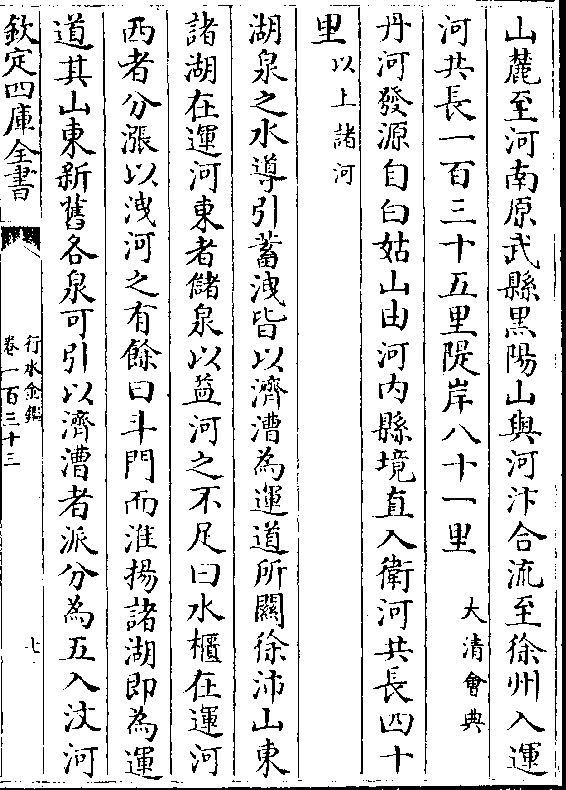 山麓至河南原武縣黑陽山與河汴合流至徐州入運
河共長一百三十五里隄岸八十一里 大清會典
丹河發源自白姑山由河内縣境直入衛河共長四十
里以上諸河
湖泉之水導引蓄洩皆以濟漕為運道所關徐沛山東
諸湖在運河東者儲泉以益河之不足曰水櫃在運河
西者分漲以洩河之有餘曰斗門而淮揚諸湖即為運
道其山東新舊各泉可引以濟漕者派分為五入汶河
欽定四庫全書
行水金鑑
卷一百三十三
七